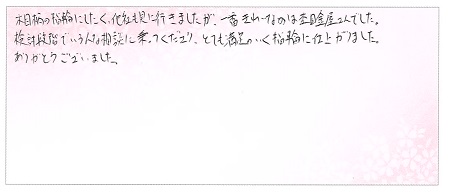 木目柄の指輪にしたく、他社も見に行きましたが、一番きれいなのは杢目金屋さんでした。
検討段階でいろんな相談に乗ってくださり、とても満足のいく指輪に仕上がりました。
ありがとうございました。